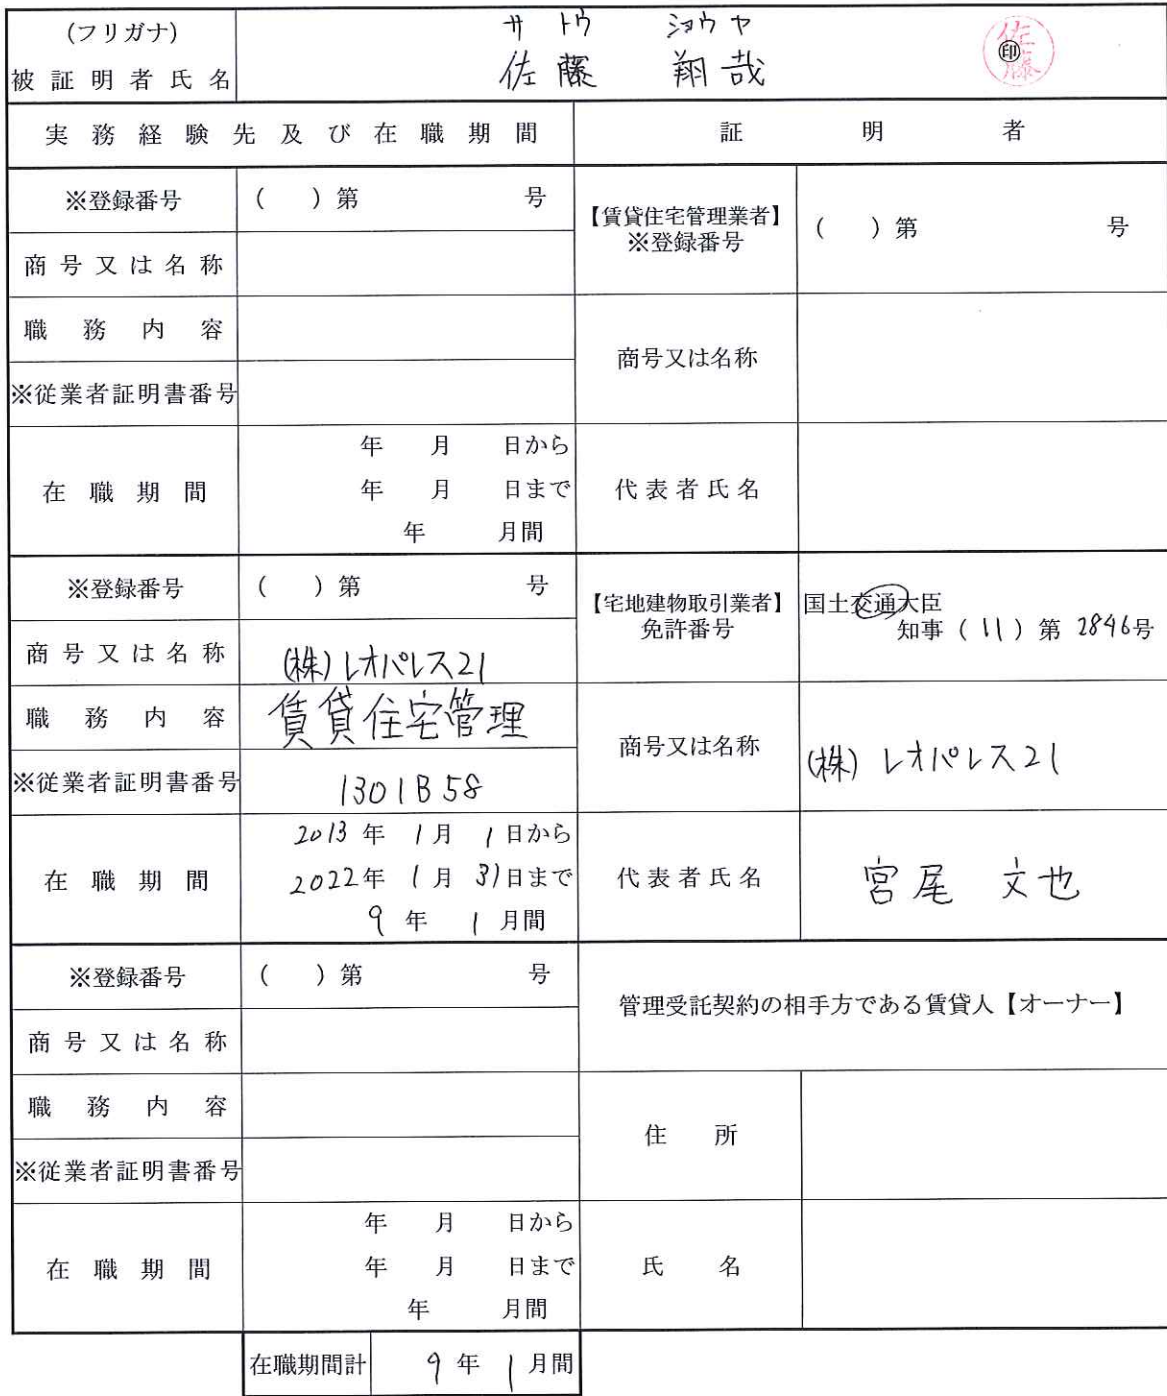 (フリガナ) サトウ ショウヤ
被証明者氏名 佐藤 翔哉 ㊞ 佐藤
実務経験先及び在職期間 証明者
※登録番号 ( )第 号
【賃貸住宅管理業者】
※登録番号 ( )第 号
商号又は名称
職務内容
商号又は名称
※従業者証明書番号
在職期間
年 月 日から
年 月 日まで
年 月間
代表者氏名
※登録番号 ( )第 号
【宅地建物取引業者】
免許番号
国土交通大臣
知事(11)第2846号
商号又は名称 (株)レオパレス21
職務内容 賃貸住宅管理
商号又は名称 (株)レオパレス21
※従業者証明書番号 1301B58
在職期間
2013年1月1日から
2022年1月31日まで
9年1月間
代表者氏名 宮尾 文也
※登録番号 ( )第 号
管理受託契約の相手方である賃貸人【オーナー】
商号又は名称
職務内容
住所
※従業者証明書番号
在職期間
年 月 日から
年 月 日まで
年 月間
氏名
在職期間計 9年1月間